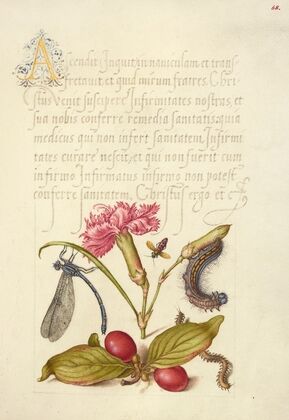 68.
Ascendit Inquit in naviculam et trans
fretavit et quid mirum fratres. Chri-
stus venit suscipere Infirmitates nostras, et
sua nobis conferre remedia sanitatis; quia
medicus qui non infert sanitatem Infirmi
tates curare nescit, et qui non fuerit cum
infirmo Infirmatus infirmo non potest
conferre sanitatem. Christus ergo et c.